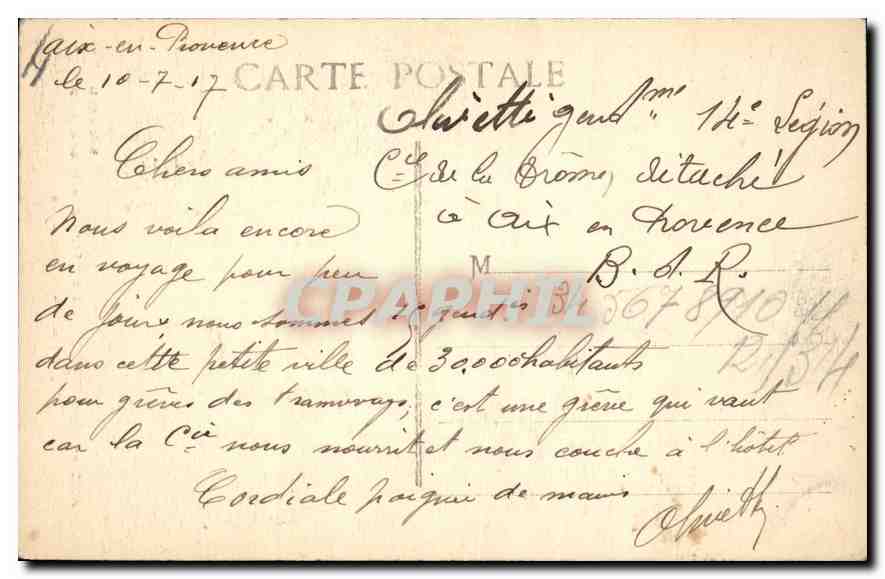 aix-en-Provence
le 10-7-17
CARTE POSTALE
Olivetti gend.me 14e Légion
Cie de la Drôme, détaché
à aix en Provence
B. d. R.
M
Chers amis
Nous voila encore
en voyage pour peu
de jours nous sommes 70 gendis
dans cette petite ville de 30.000 habitants
pour grèves des tramways, c'est une grève qui vaut
car la Cie nous nourrit et nous couche à l'hôtel
Cordiale poignée de mains
Olivetti
34 5678910 11
12/3/4
CPAPHIL